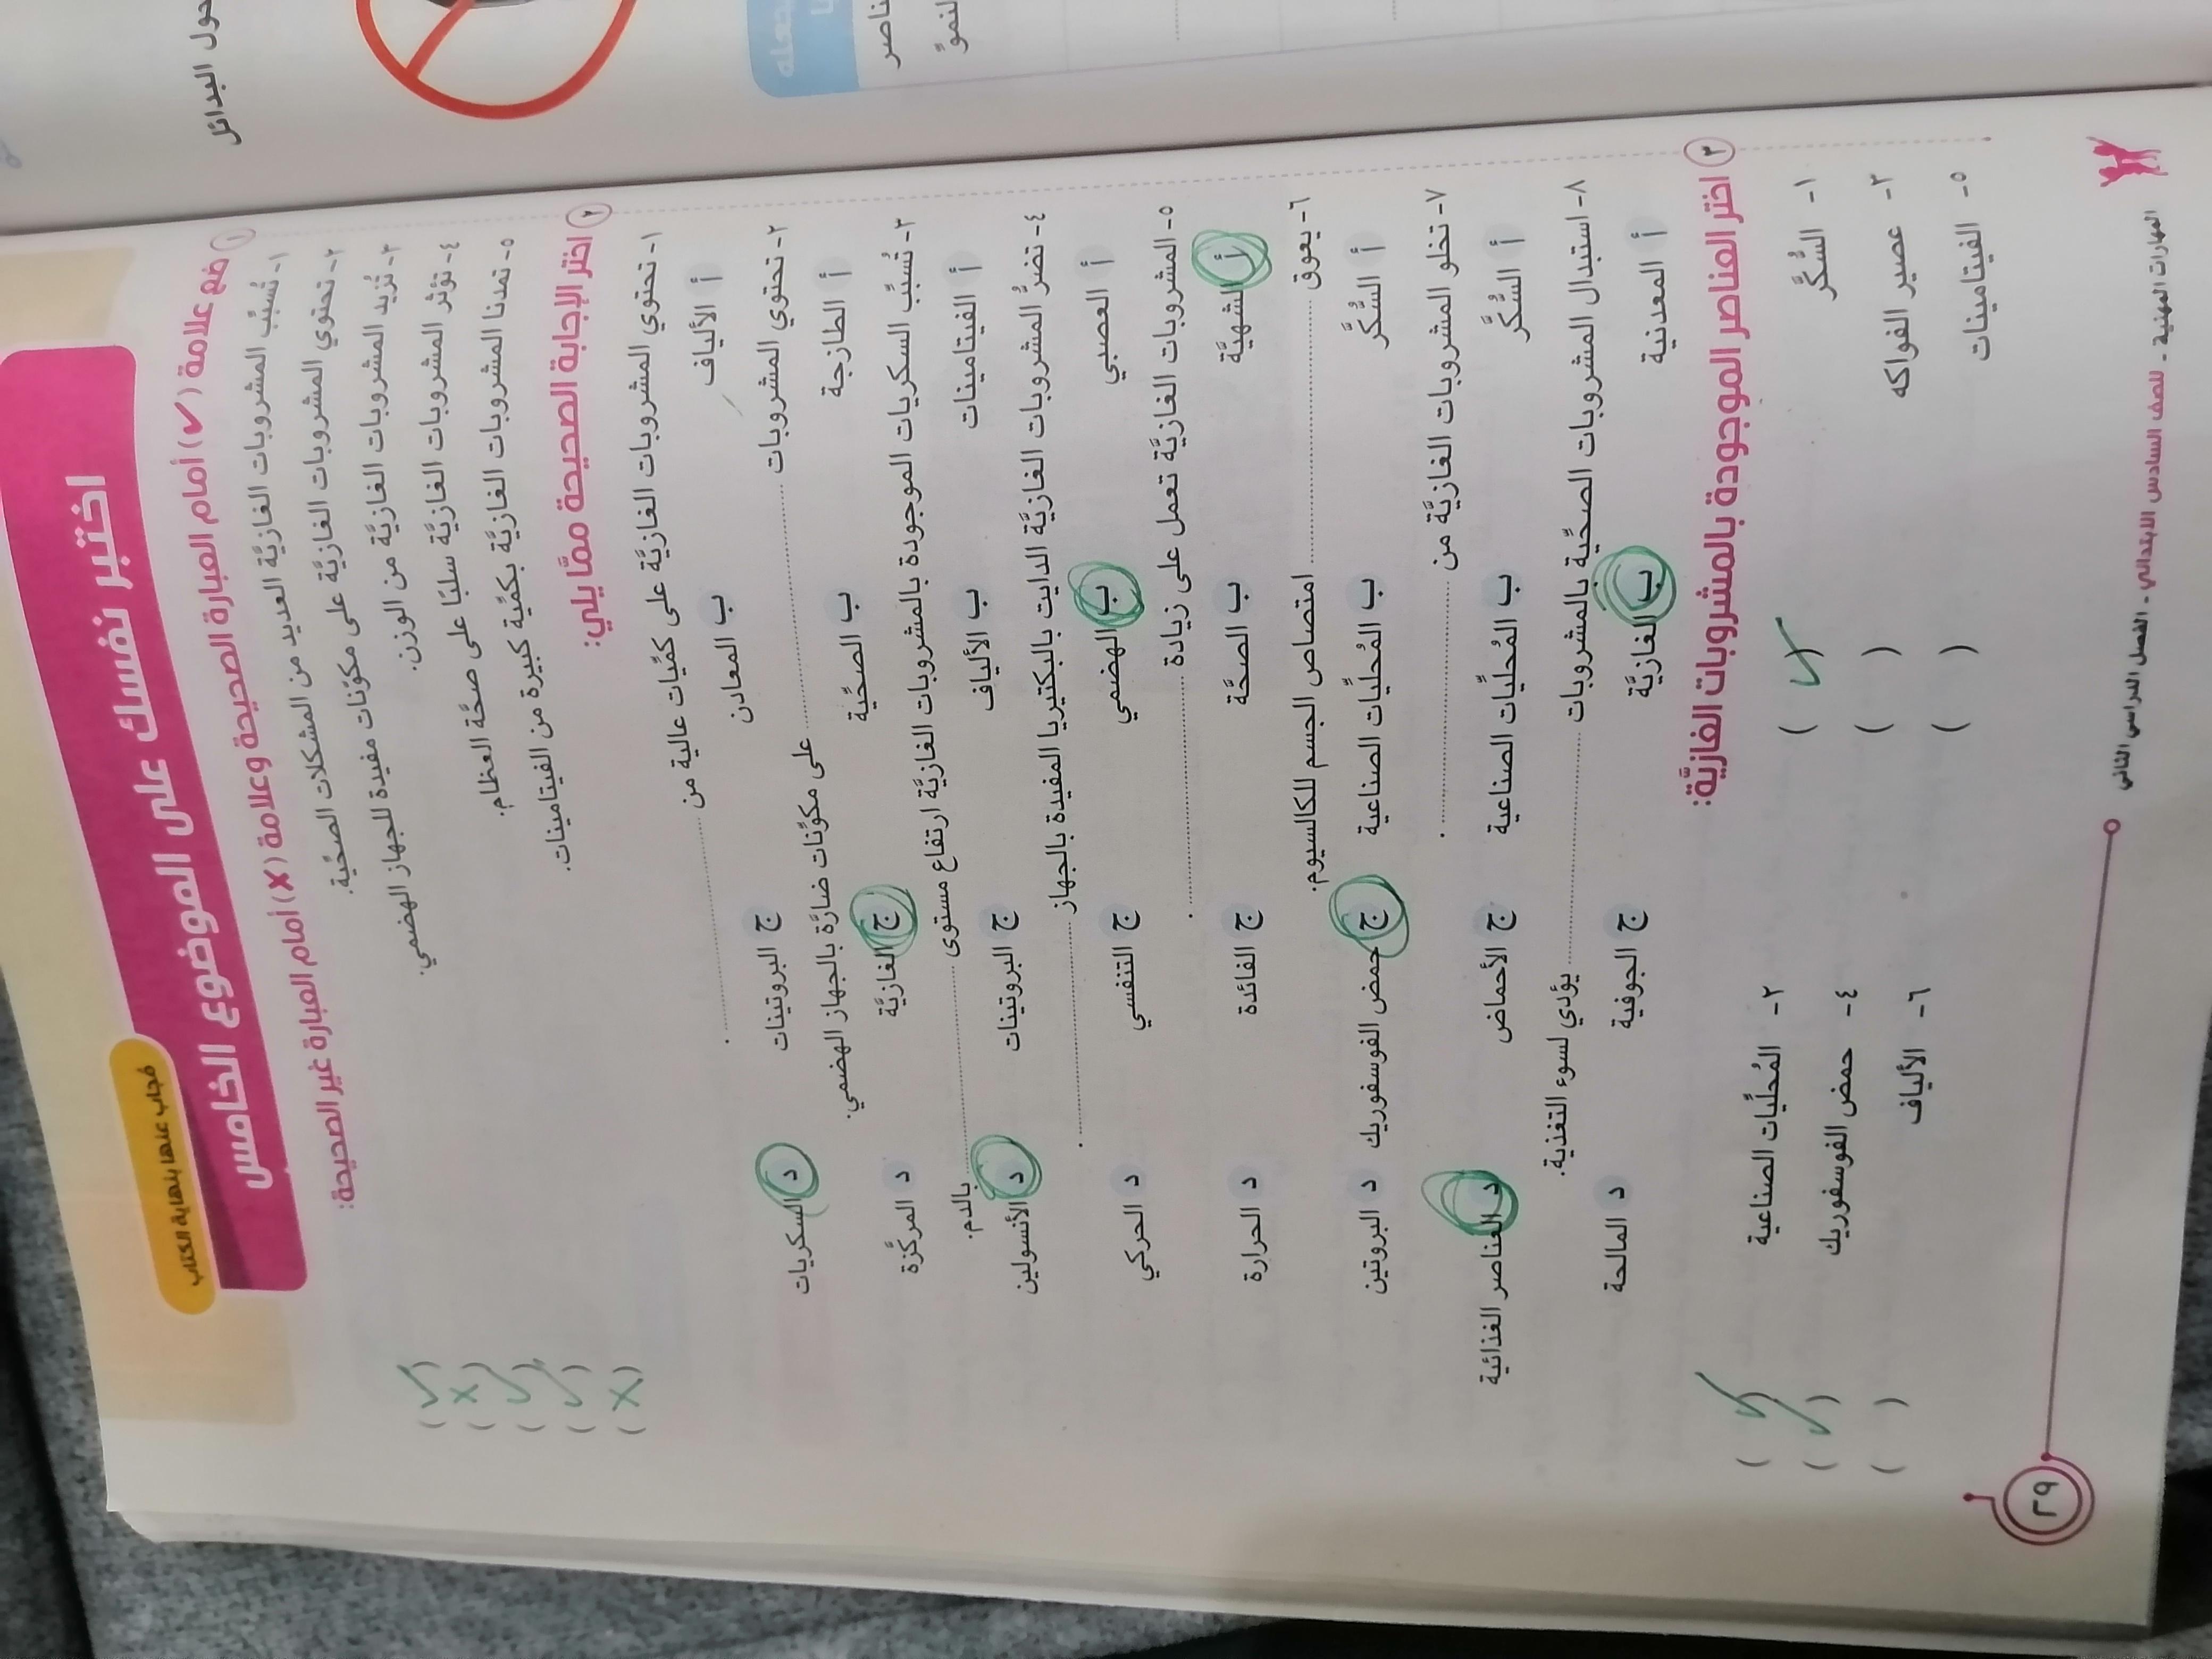 مُجاب عنها بنهاية الكتاب
اختبر نفسك على الموضوع الخامس
١ ضع علامة (✓) أمام العبارة الصحيحة وعلامة (✗) أمام العبارة غير الصحيحة:
١- تُسبِّب المشروبات الغازيَّة العديد من المشكلات الصحِّية. (✓)
٢- تحتوي المشروبات الغازيَّة على مكوِّنات مفيدة للجهاز الهضمي. (✗)
٣- تُزيد المشروبات الغازيَّة من الوزن. (✓)
٤- تؤثر المشروبات الغازيَّة سلبًا على صحَّة العظام. (✓)
٥- تمدنا المشروبات الغازيَّة بكمِّية كبيرة من الفيتامينات. (✗)
٢ اختر الإجابة الصحيحة ممَّا يلي:
١- تحتوي المشروبات الغازيَّة على كمِّيات عالية من ............ .
أ الألياف ب المعادن ج البروتينات د السكريات
٢- تحتوي المشروبات ............ على مكوِّنات ضارَّة بالجهاز الهضمي.
أ الطازجة ب الصحِّية ج الغازيَّة د المركَّزة
٣- تُسبِّب السكريات الموجودة بالمشروبات الغازيَّة ارتفاع مستوى ............ بالدم.
أ الفيتامينات ب الألياف ج البروتينات د الأنسولين
٤- تضرُّ المشروبات الغازيَّة الدايت بالبكتيريا المفيدة بالجهاز ............ .
أ العصبي ب الهضمي ج التنفسي د الحركي
٥- المشروبات الغازيَّة تعمل على زيادة ............ .
أ الشهيَّة ب الصحَّة ج الفائدة د الحرارة
٦- يعوق ............ امتصاص الجسم للكالسيوم.
أ السُّكَّر ب المُحلِّيات الصناعية ج حمض الفوسفوريك د البروتين
٧- تخلو المشروبات الغازيَّة من ............ .
أ السُّكَّر ب المُحلِّيات الصناعية ج الأحماض د العناصر الغذائية
٨- استبدال المشروبات الصحِّية بالمشروبات ............ يؤدي لسوء التغذية.
أ المعدنية ب الغازيَّة ج الجوفية د المالحة
٣ اختر العناصر الموجودة بالمشروبات الغازيَّة:
١- السُّكَّر (✓) ٢- المُحلِّيات الصناعية (✓)
٣- عصير الفواكه ( ) ٤- حمض الفوسفوريك (✓)
٥- الفيتامينات ( ) ٦- الألياف ( )
المهارات المهنية - للصف السادس الابتدائي - الفصل الدراسي الثاني
٢٩
حول البدائل